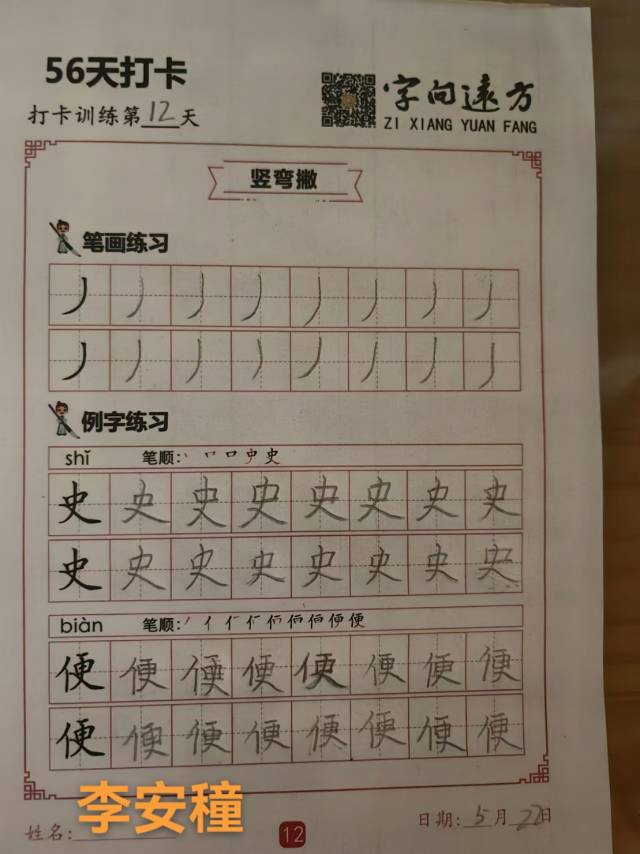 56天打卡
打卡训练第12天
字向远方
ZI XIANG YUAN FANG
竖弯撇
笔画练习
丿 丿 丿 丿 丿 丿 丿 丿
丿 丿 丿 丿 丿 丿 丿 丿
例字练习
shǐ 笔顺:丨 口 口 史 史
史 史 史 史 史 史 史 史
史 史 史 史 史 史 史 史
biàn 笔顺:
便 便 便 便 便 便 便 便
便 便 便 便 便 便 便 便
李安穜
姓名:
12
日期:5月22日